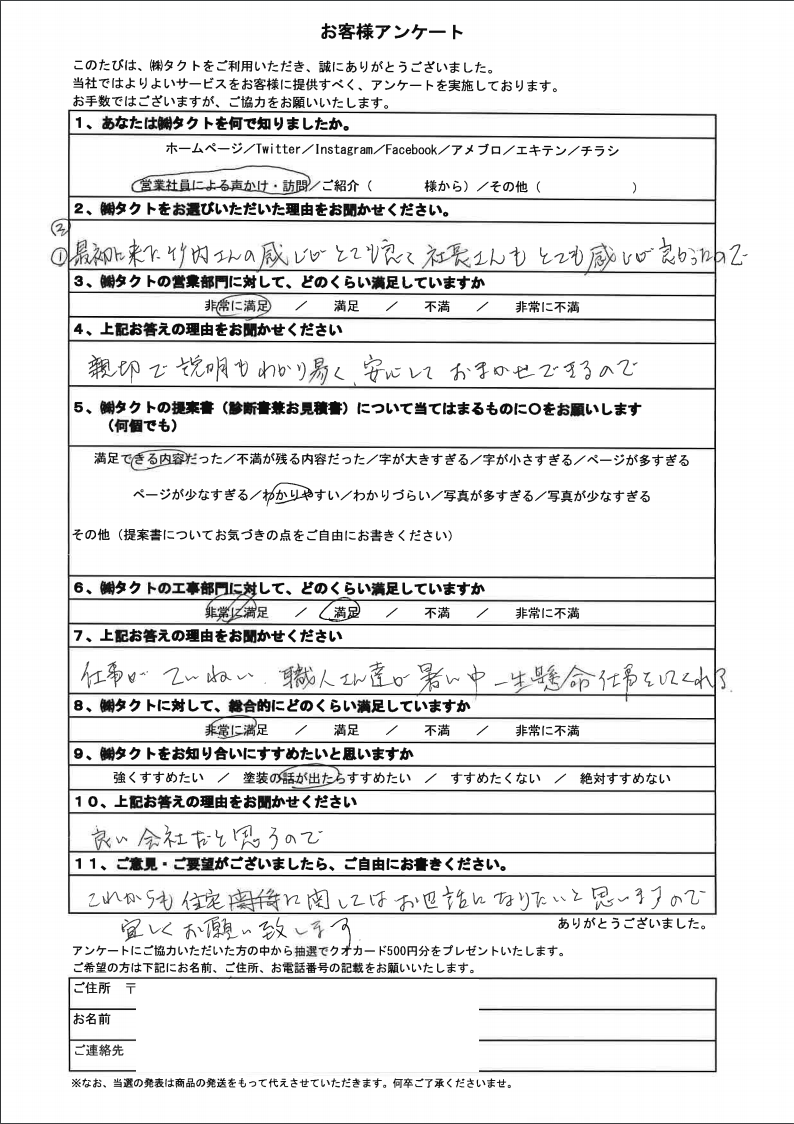 お客様アンケート
このたびは、㈱タクトをご利用いただき、誠にありがとうございました。
当社ではよりよいサービスをお客様に提供すべく、アンケートを実施しております。
お手数ではございますが、ご協力をお願いいたします。
1、あなたは㈱タクトを何で知りましたか。
ホームページ／Twitter／Instagram／Facebook／アメブロ／エキテン／チラシ
営業社員による声かけ・訪問／ご紹介（　　　　様から）／その他（　　　　　　　）
2、㈱タクトをお選びいただいた理由をお聞かせください。
②
①最初に来た竹内さんの感じがとても良くて社長さんもとても感じが良かったので
3、㈱タクトの営業部門に対して、どのくらい満足していますか
非常に満足　／　満足　／　不満　／　非常に不満
4、上記お答えの理由をお聞かせください
親切で説明もわかり易く、安心しておまかせできるので
5、㈱タクトの提案書（診断書兼お見積書）について当てはまるものに○をお願いします
（何個でも）
満足できる内容だった／不満が残る内容だった／字が大きすぎる／字が小さすぎる／ページが多すぎる
ページが少なすぎる／わかりやすい／わかりづらい／写真が多すぎる／写真が少なすぎる
その他（提案書についてお気づきの点をご自由にお書きください）
6、㈱タクトの工事部門に対して、どのくらい満足していますか
非常に満足　／　満足　／　不満　／　非常に不満
7、上記お答えの理由をお聞かせください
仕事がていねい、職人さん達が暑い中一生懸命仕事をしてくれる。
8、㈱タクトに対して、総合的にどのくらい満足していますか
非常に満足　／　満足　／　不満　／　非常に不満
9、㈱タクトをお知り合いにすすめたいと思いますか
強くすすめたい　／　塗装の話が出たらすすめたい　／　すすめたくない　／　絶対すすめない
10、上記お答えの理由をお聞かせください
良い会社だと思うので
11、ご意見・ご要望がございましたら、ご自由にお書きください。
これからも住宅に関してはお世話になりたいと思いますので
宜しくお願い致します
ありがとうございました。
アンケートにご協力いただいた方の中から抽選でクオカード500円分をプレゼントいたします。
ご希望の方は下記にお名前、ご住所、お電話番号の記載をお願いいたします。
ご住所　〒
お名前
ご連絡先
※なお、当選の発表は商品の発送をもって代えさせていただきます。何卒ご了承くださいませ。